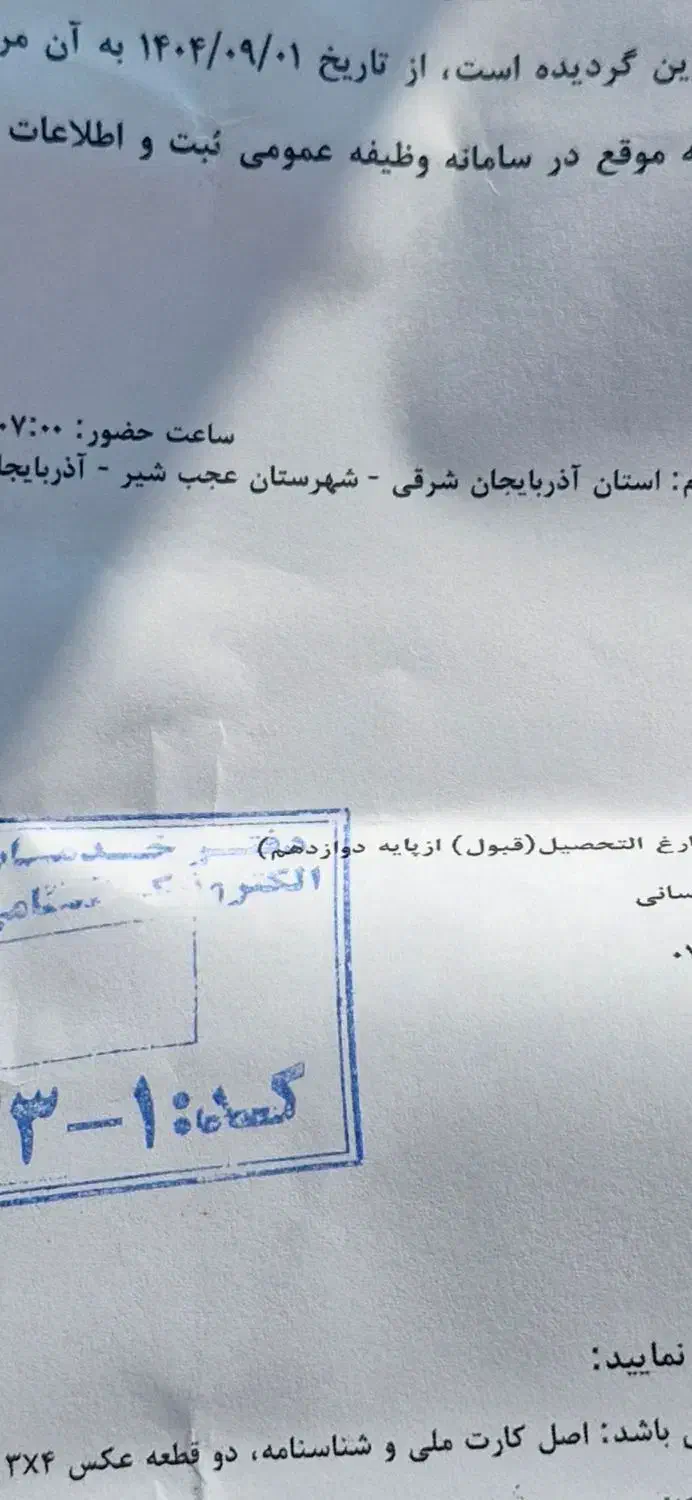 ین گردیده است، از تاریخ ۱۴۰۴/۰۹/۰۱ به آن مر
ه موقع در سامانه وظیفه عمومی ثبت و اطلاعات
ساعت حضور: ۰۷:۰۰
م: استان آذربایجان شرقی - شهرستان عجب شیر - آذربایجا
ارغ التحصیل(قبول) ازپایه دوازدهم)
سانی
دفتر
کد: ۱-۳
نمایید:
باشد: اصل کارت ملی و شناسنامه، دو قطعه عکس ۳X۴